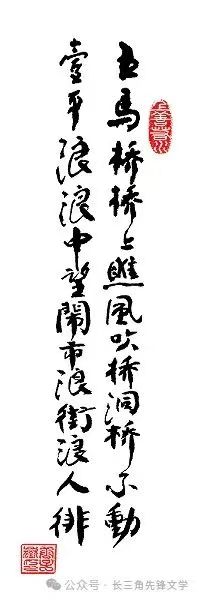 上善若水
五馬桥桥上瞧風吹桥洞桥不動
壹平浪浪中望鬧市浪街浪人徘
公众号 · 长三角先锋文学